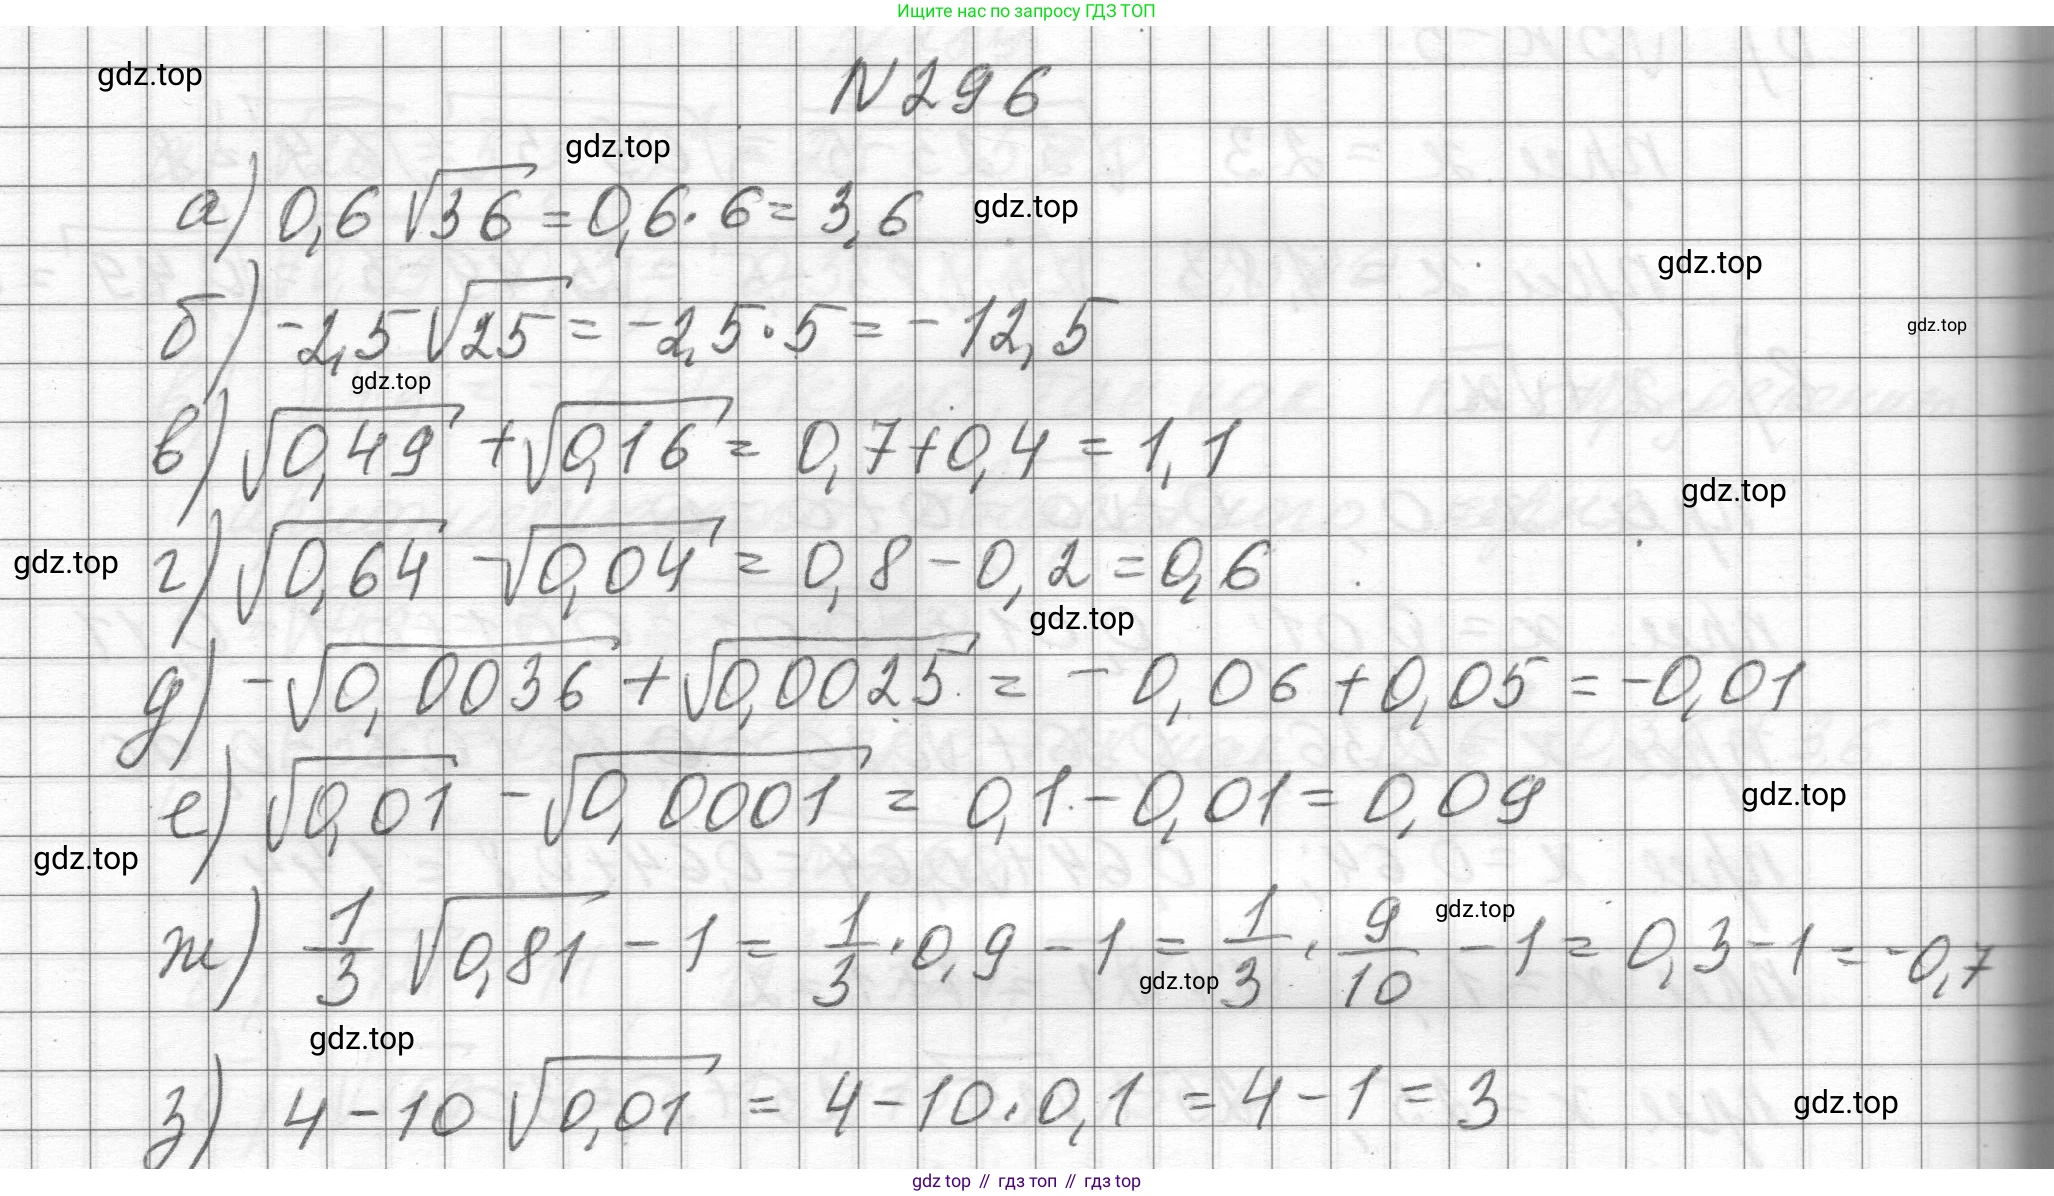 Ищите нас по запросу ГДЗ ТОП
gdz.top
N296
gdz.top
а) 0,6 √36 = 0,6 · 6 = 3,6
gdz.top
gdz.top
б) -2,5 √25 = -2,5 · 5 = -12,5
gdz.top
gdz.top
в) √0,49 + √0,16 = 0,7 + 0,4 = 1,1
gdz.top
г) √0,64 - √0,04 = 0,8 - 0,2 = 0,6
gdz.top
gdz.top
д) -√0,0036 + √0,0025 = -0,06 + 0,05 = -0,01
е) √0,01 - √0,0001 = 0,1 - 0,01 = 0,09
gdz.top
gdz.top
ж) 1/3 √0,81 - 1 = 1/3 · 0,9 - 1 = 1/3 · 9/10 - 1 = 0,3 - 1 = -0,7
gdz.top
gdz.top
gdz.top
з) 4 - 10 √0,01 = 4 - 10 · 0,1 = 4 - 1 = 3
gdz.top
gdz top // гдз топ // gdz top